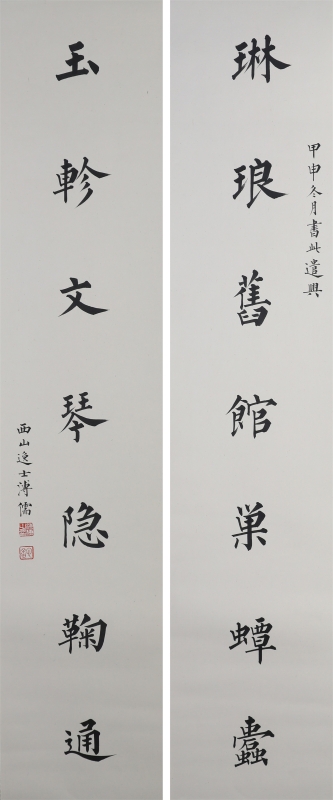 甲申冬月書此遣興
琳琅舊館巢蟫蠹
玉軫文琴隐鞠通
西山逸士溥儒